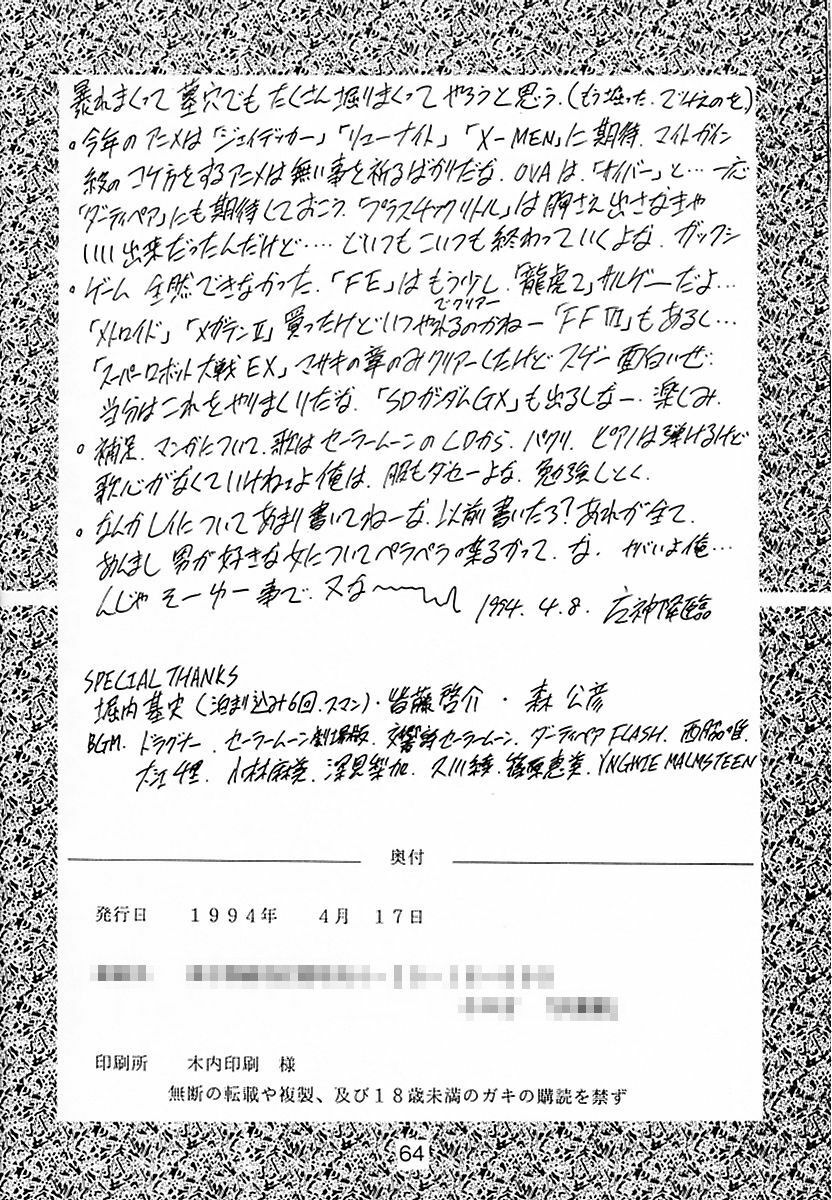 暴れまくって墓穴でもたくさん掘りまくってやろうと思う.(もう堀った.でねえのを)
。今年のアニメは「ジェイデッカー」「リューナイト」「X-MEN」に期待.マイトガイン
級のコケ方をするアニメは無い事を祈るばかりだな.OVAは.「ガイバー」と…一応
「ダーティペア」にも期待しておこう.「プラスチックリトル」は胸さえ出さなきゃ
いい出来だったんだけど….どいつもこいつも終わっていくよな.ガックシ
。ゲーム 全然できなかった.「FE」はもう少しでクリアー.「龍虎2」サルゲーだよ…
「メトロイド」「メガテンⅡ」買ったけどいつやれるのかねー「FFⅥ」もあるし…
「スーパーロボット大戦EX」マサキの章のみクリアーしたけどスゲー面白いぜ.
当分はこれをやりまくりだな.「SDガンダムGX」も出るしなー.楽しみ.
。補足.マンガについて.歌はセーラームーンのLDから.パクリ.ピアノは弾けるけど
歌心がなくていけねェよ俺は.服もダセーよな.勉強しとく.
。なんかレイについてあまり書いてねーな.以前書いたろ?あれが全て.
あんまし男が好きな女についてペラペラ喋るかって.な.ヤバいよ俺…
んじゃそーゆー事で.又な〜 1994.4.8. 降臨
SPECIAL THANKS
堀内基史(泊まり込み6回.スマン)・斉藤啓介・森公彦
BGM.ドラグナー.セーラームーン劇場版.交響詩セーラームーン.ダーティペアFLASH.西脇唯.
大江千里.小林麻美.深見梨加.久川綾.篠原恵美.YNGWIE MALMSTEEN
奥付
発行日 1994年 4月 17日
印刷所 木内印刷 様
無断の転載や複製、及び18歳未満のガキの購読を禁ず
64